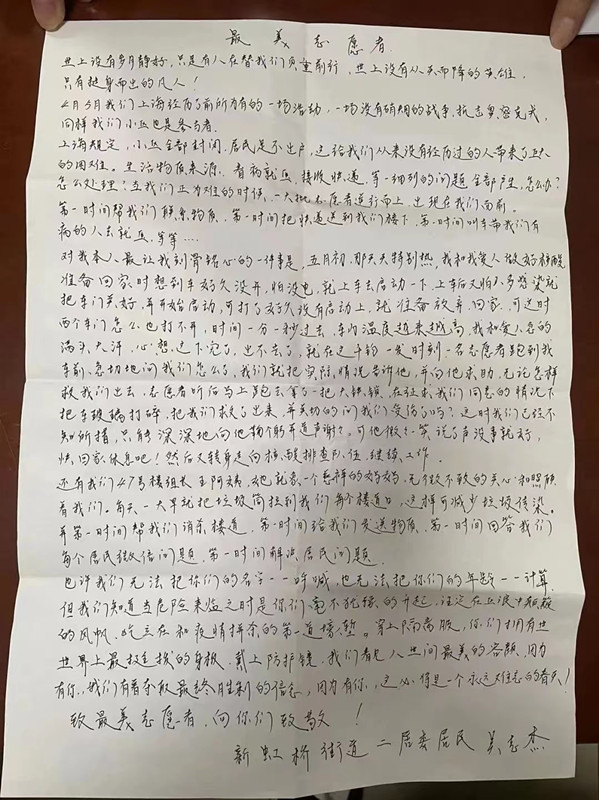 最美志愿者
世上没有岁月静好,只是有人在替我们负重前行,世上没有从天而降的英雄,
只有挺身而出的凡人!
4月5月我们上海经历了前所有的一场活动,一场没有硝烟的战争,抗击奥密克戎,
同样我们小区也是参与者.
上海规定,小区全部封闭.居民足不出户,这给我们从来没有经历过的人带来了巨大
的困难。生活物质来源.看病就医.接收快递,等一细列的问题全部产生,怎么办?
怎么处理?在我们正为难的时候,一大批志愿者逆行而上,出现在我们面前.
第一时间帮我们联系物质,第一时间把快递送到我们楼下,第一时间叫车带我们有
病的人去就医,等等....
对我本人最让我刻骨铭心的一件事是,五月初,那天天特别热,我和我爱人做好核酸
准备回家,时想到车好久没开,怕没电,就上车去启动一下,上车后又怕人多感染就
把车门关好,并开始启动,可打了好久没有启动上,就准备放弃回家,可这时
两个车门怎么也打不开,时间一分一秒过去,车内温度越来越高,我和爱人急的
满头大汗,心想,这下完了,出不去了,就在这千钧一发时刻一名志愿者跑到我
车前,急切地问我们怎么了,我们就把实际情况告诉他,并向他求助,无论怎样
救我们出去,志愿者听后马上跑去拿了一把大铁锤,在征求我们同志的情况下
把车玻璃打碎,把我们救了出来,并关切的问我们受伤了吗?这时我们已经不
知所措,只能深深地向他鞠个躬并道声谢谢,可他微微一笑,说了声没事就好,
快回家休息吧!然后又转身走向核酸排查队伍,继续工作.
还有我们47号楼组长王阿姨,她也就象一个慈祥的妈妈,无微不致的关心和照顾
着我们。每天一大早就把垃圾筒拉到我们每个楼道口,这样可减少垃圾传染。
并第一时间帮我们消杀楼道,第一时间给我们发送物质,第一时间回答我们
每个居民微信问题,第一时间解决居民问题.
也许我们无法把你们的名字一一呼喊,也无法把你们的年龄一一计算,
但我们知道当危险来临之时是你们毫不犹豫的升起,注定在巨浪中颠簸
的风帆,屹立在和疫情拼杀的第一道搞垒。穿上防护服,你们拥有世
世界上最挺拔的身板,戴上防护镜,我们看见人世间最美的容颜,因为
有你,我们有着夺取最终胜利的信念,因为有你,这必将是一个永远难忘的春天!
致最美志愿者,向你们致敬!
新虹桥街道二居委居民 吴志杰